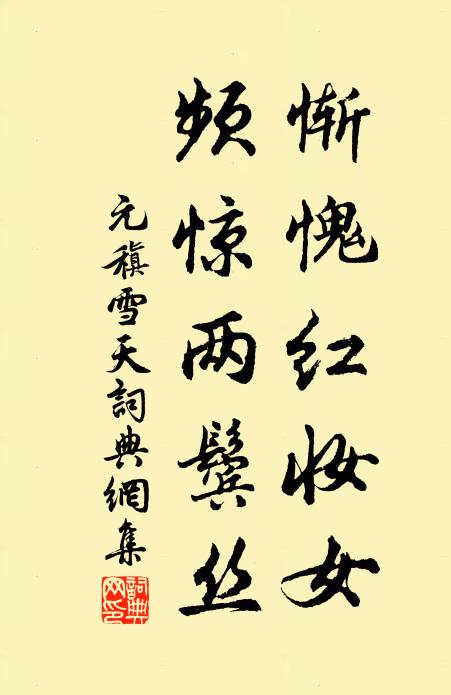 惭愧红妆女
频惊两鬓丝
元稹雪天詞典網集
詞典
网印